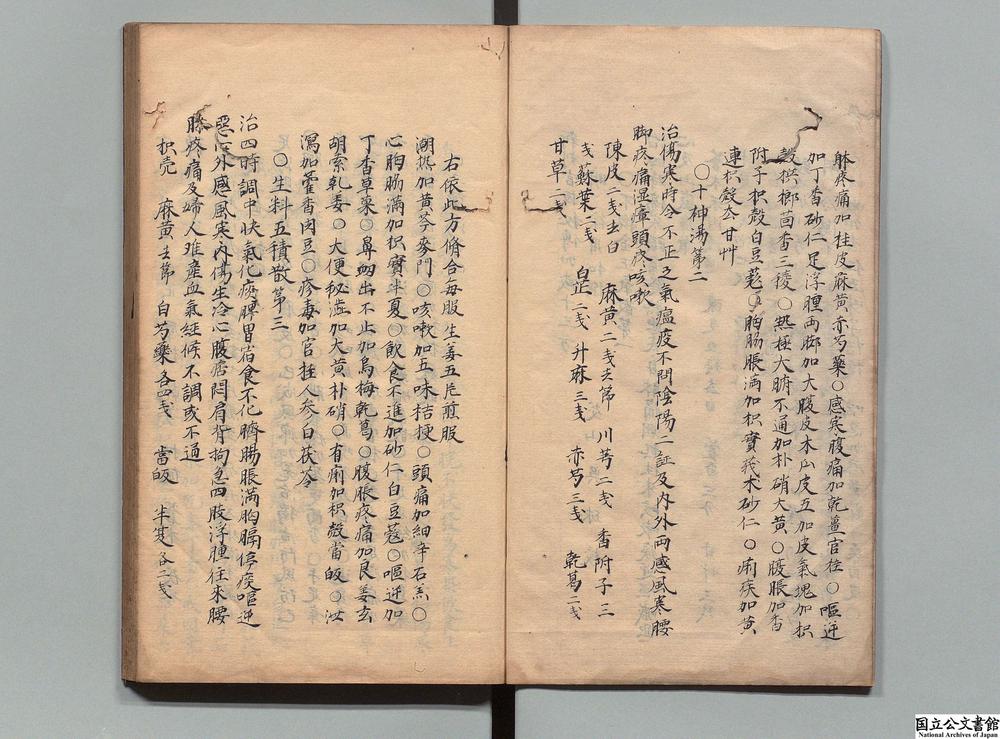 躰疼痛加桂皮麻黄赤芍藥〇感寒腹痛加乾薑官桂〇嘔逆
加丁香砂仁足浮腫両脚加大腹皮木瓜皮五加皮氣塊加枳
殻栱榔茴香三稜〇熱極大腑不通加朴硝大黄〇腹脹加香
附子枳殻白豆蔲〇胸腸脹満加枳實莪朮砂仁〇痢疾加黄
連枳殻去甘艸
〇十神湯第二
治傷寒時令不正之氣瘟疫不問陰陽二証及内外両感風寒腰
脚疼痛湿瘴頭疼咳嗽
陳皮二戔去白 麻黄二戔去節 川芎二戔 香附子三
戔蘇葉二戔 白芷二戔 升麻三戔 赤芍三戔 乾葛二戔
甘草二戔
右依此方脩合毎服生姜五片煎服
潮熱加黄芩麥門〇咳嗽加五味桔梗〇頭痛加細辛石羔〇
心胸腸満加枳實半夏〇飲食不進加砂仁白豆蔲〇嘔逆加
丁香草菓〇鼻衂出不止加烏梅乾葛〇腹脹疼痛加良姜玄
胡索乾姜〇大便秘澁加大黄朴硝〇有痢加枳殻當皈〇泄
瀉加藿香肉豆〇疹毒加官桂人参白茯苓
〇生料五積散第三
治四時調中快氣化痰脾胃宿食不化臍腸脹満胸膈停痰嘔逆
惡心外感風寒内傷生冷心腹痞悶肩背拘急四肢浮腫往来腰
膝疼痛及婦人难産血氣經候不調或不通
枳壳 麻黄去節 白芍藥各四戔 當皈 半夏各二戔
国立公文書館
National Archives of Japan